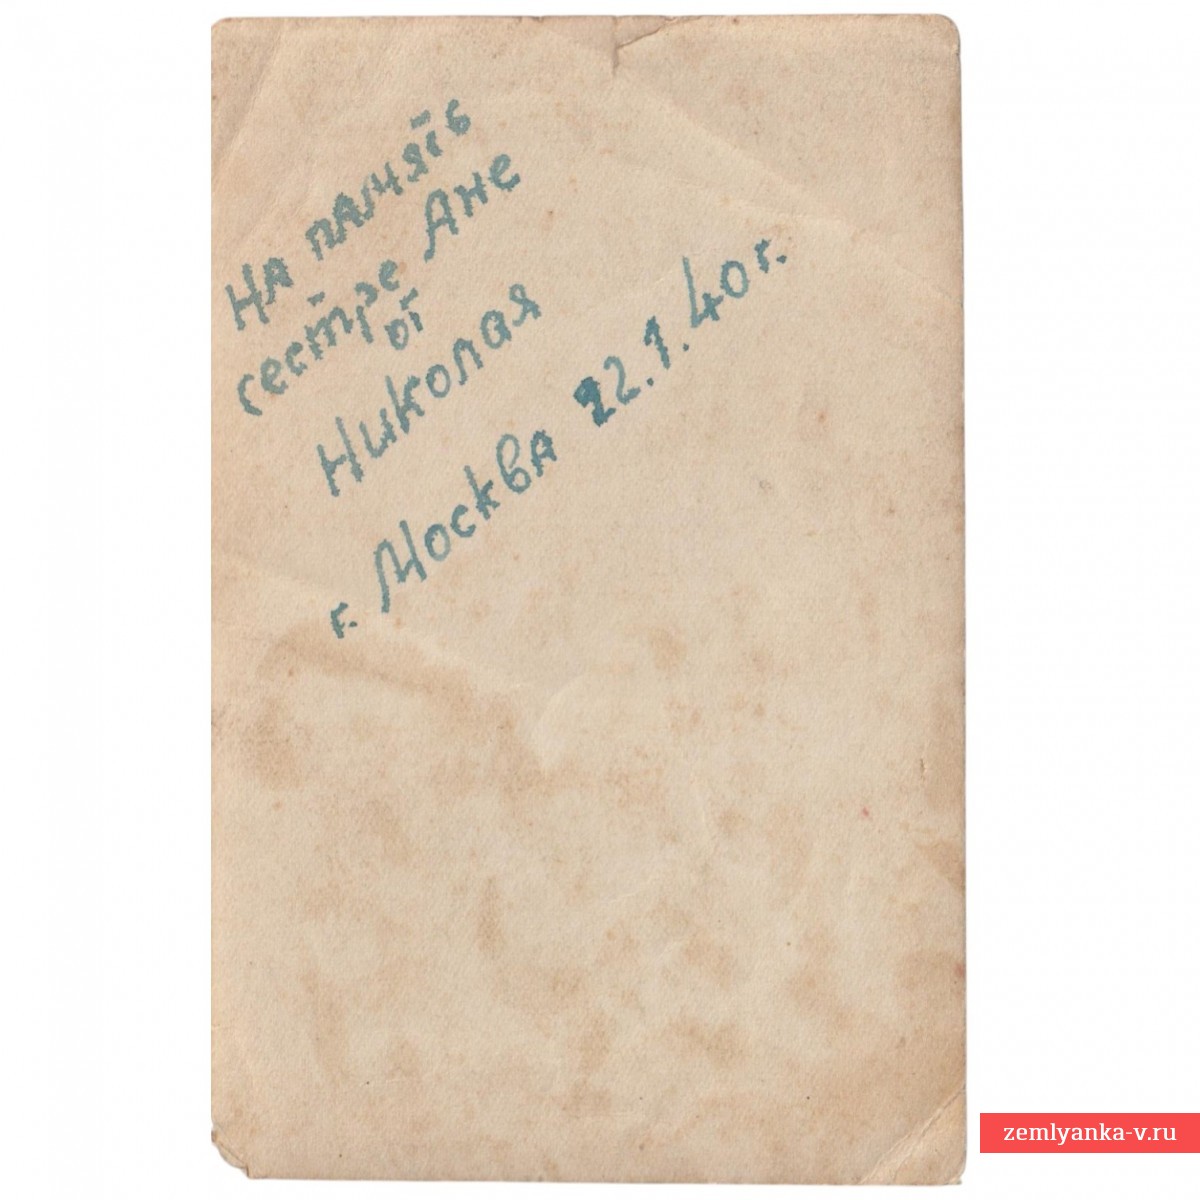 На память
сестре Ане
от
Николая
г. Москва 22.1.40 г.
zemlyanka-v.ru